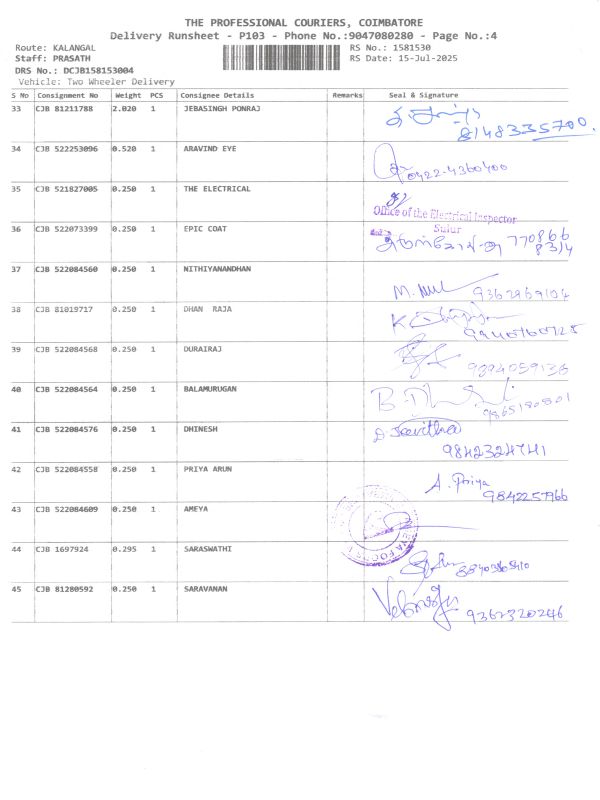 THE PROFESSIONAL COURIERS, COIMBATORE
Delivery Runsheet - P103 - Phone No.:9047080280 - Page No.:4
Route: KALANGAL RS No.: 1581530
Staff: PRASATH RS Date: 15-Jul-2025
DRS No.: DCJB158153004
Vehicle: Two Wheeler Delivery
S No Consignment No Weight PCS Consignee Details Remarks Seal & Signature
33 CJB 81211788 2.020 1 JEBASINGH PONRAJ
8148335700.
34 CJB 522253096 0.520 1 ARAVIND EYE
0422-4360400
35 CJB 521827005 0.250 1 THE ELECTRICAL
Office of the Electrical Inspector
Sulur
36 CJB 522073399 0.250 1 EPIC COAT
770866
8314
37 CJB 522084560 0.250 1 NITHIYANANDHAN
9362969104
38 CJB 81019717 0.250 1 DHAN RAJA
39 CJB 522084568 0.250 1 DURAIRAJ
9894059136
40 CJB 522084564 0.250 1 BALAMURUGAN
41 CJB 522084576 0.250 1 DHINESH
Savitha
9842324741
42 CJB 522084558 0.250 1 PRIYA ARUN
A. Priya
9842257966
43 CJB 522084609 0.250 1 AMEYA
44 CJB 1697924 0.295 1 SARASWATHI
45 CJB 81280592 0.250 1 SARAVANAN
9362320246